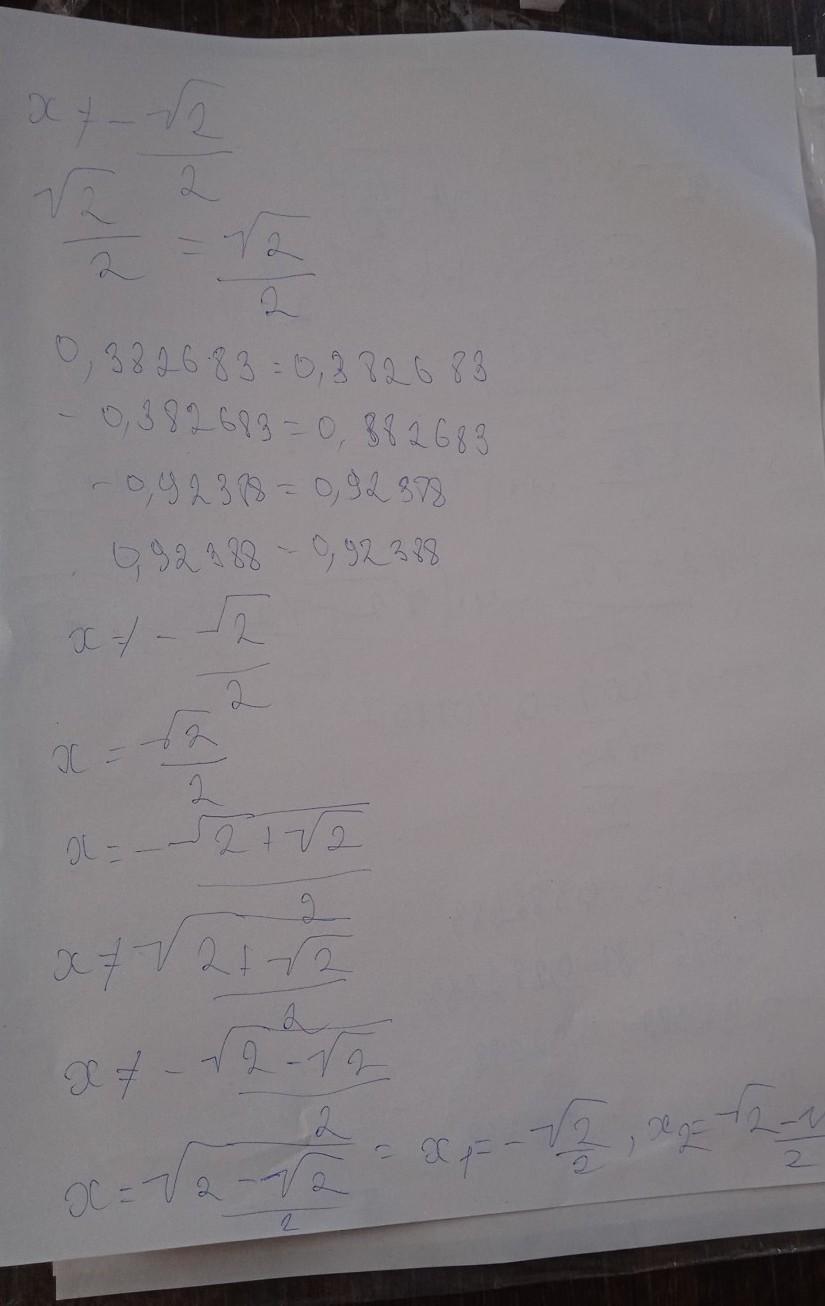 x ≠ -√2/2
√2/2 = √2/2
0,382683 = 0,382683
- 0,382683 = 0,382683
- 0,92388 = 0,92388
0,92388 - 0,92388
x ≠ - √2/2
x = √2/2
x = -√(2+√2)/2
x ≠ √(2+√2)/2
x ≠ -√(2-√2)/2
x = √(2-√2)/2 = x₁ = -√2/2, x₂ = √2-√/2